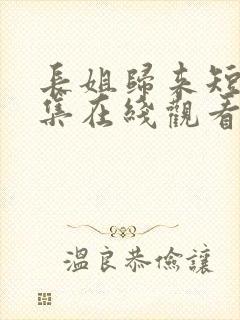 長姐歸來短
集在綫觀看
溫良恭儉讓